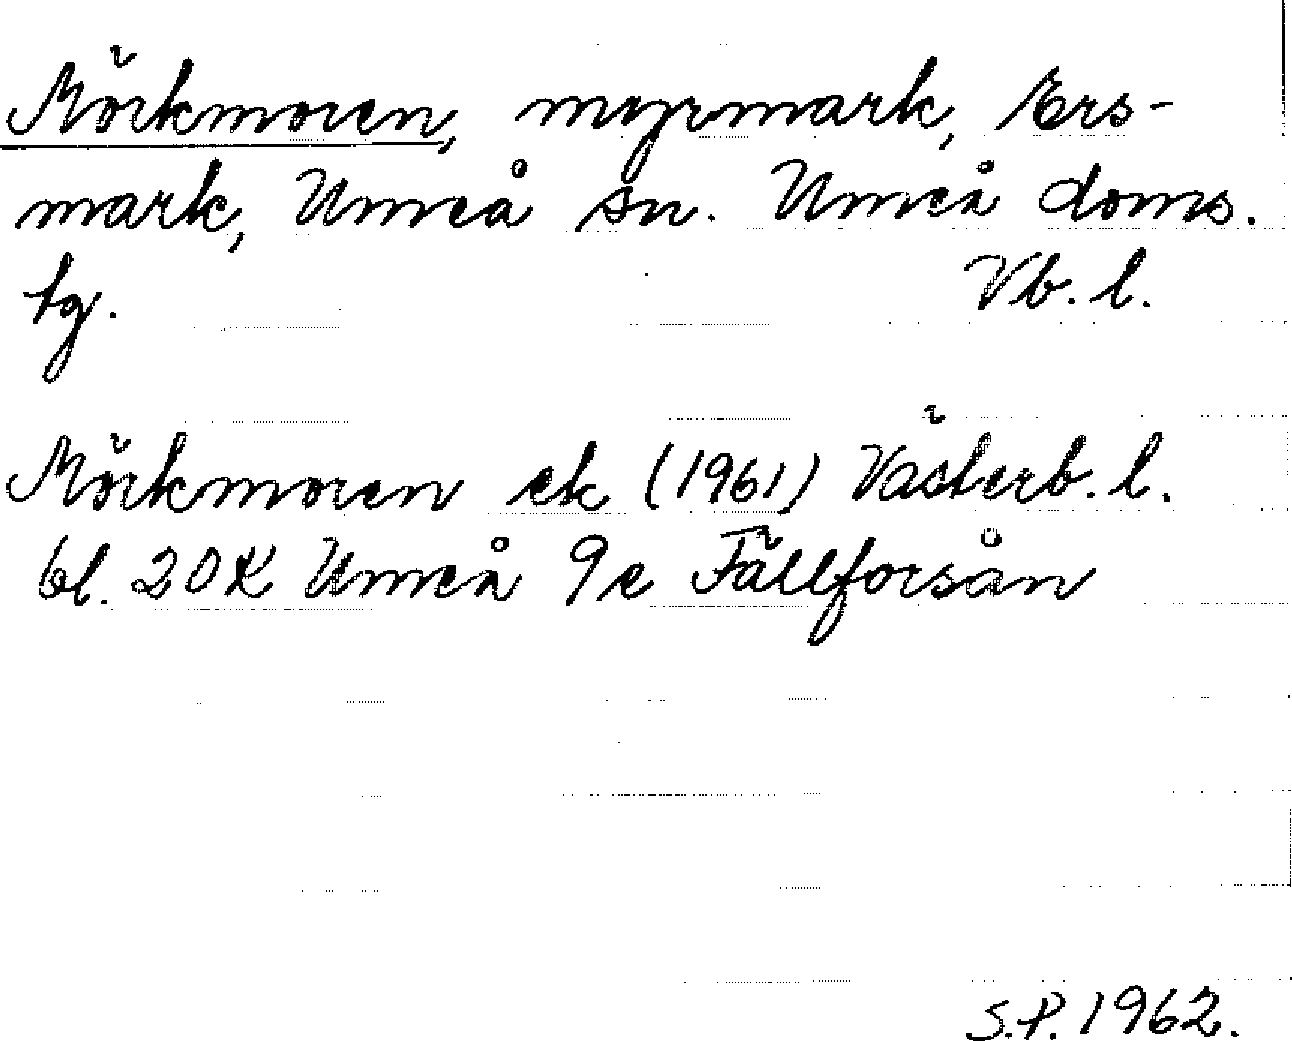 Mörkmoren, myrmark, Ers-
mark, Umeå sn. Umeå doms.
tg. Vb. l.
Mörkmoren ek (1961) Västerb. l.
bl. 20K Umeå 9e Fällforsån
S.P. 1962.